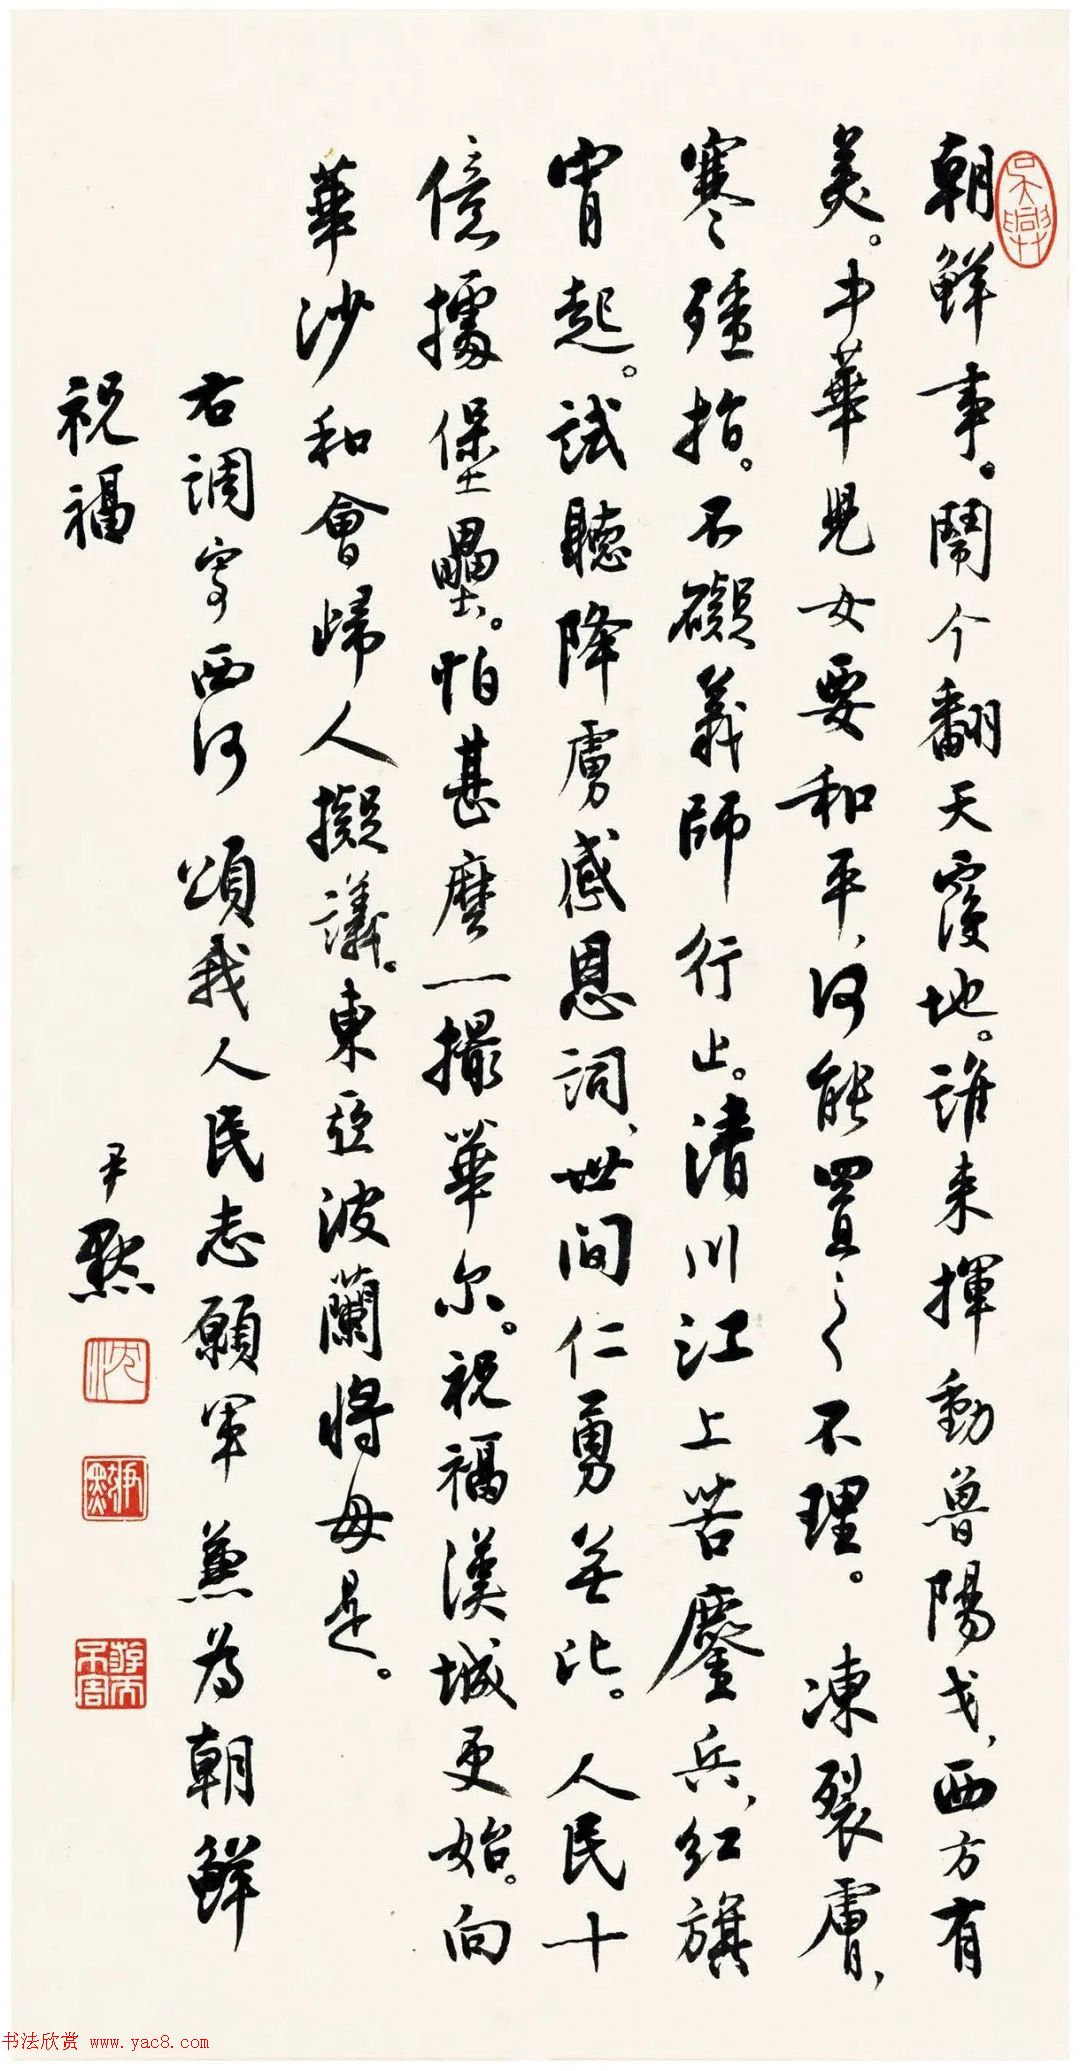 朝鮮事。鬧个翻天覆地。誰來揮動魯陽戈、西方有
美。中華兒女要和平、何能置之不理。 凍裂膚、
寒殭指。不礙義師行止。清川江上苦鏖兵、紅旗
宵起。試聽降虜感恩詞、世間仁勇無比。 人民十
億擄堡壘。怕甚麼一撮華尔。祝福漢城更始。向
華沙和會歸人擬議。東亞波蘭將毋是。
右調寄西河 頌我人民志願軍 兼為朝鮮
祝福
尹默
沈
尹默
吳興
书法欣赏 www.yac8.com